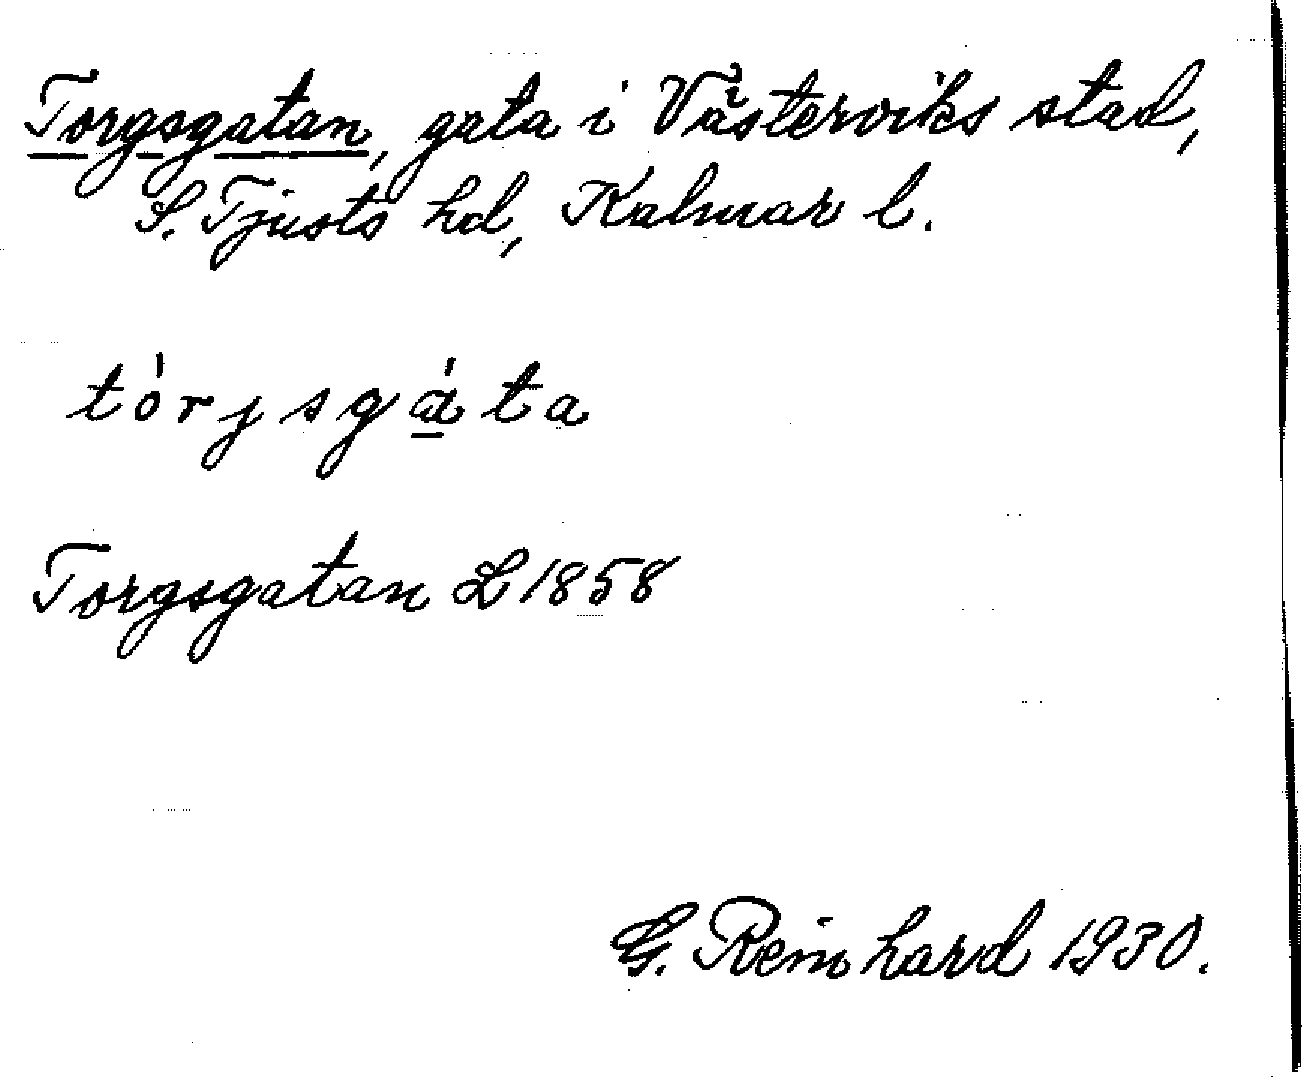 Torgsgatan, gata i Västerviks stad,
S. Tjusts hd, Kalmar l.
tórjsgáta
Torgsgatan L 1858
G. Reinhard 1930.